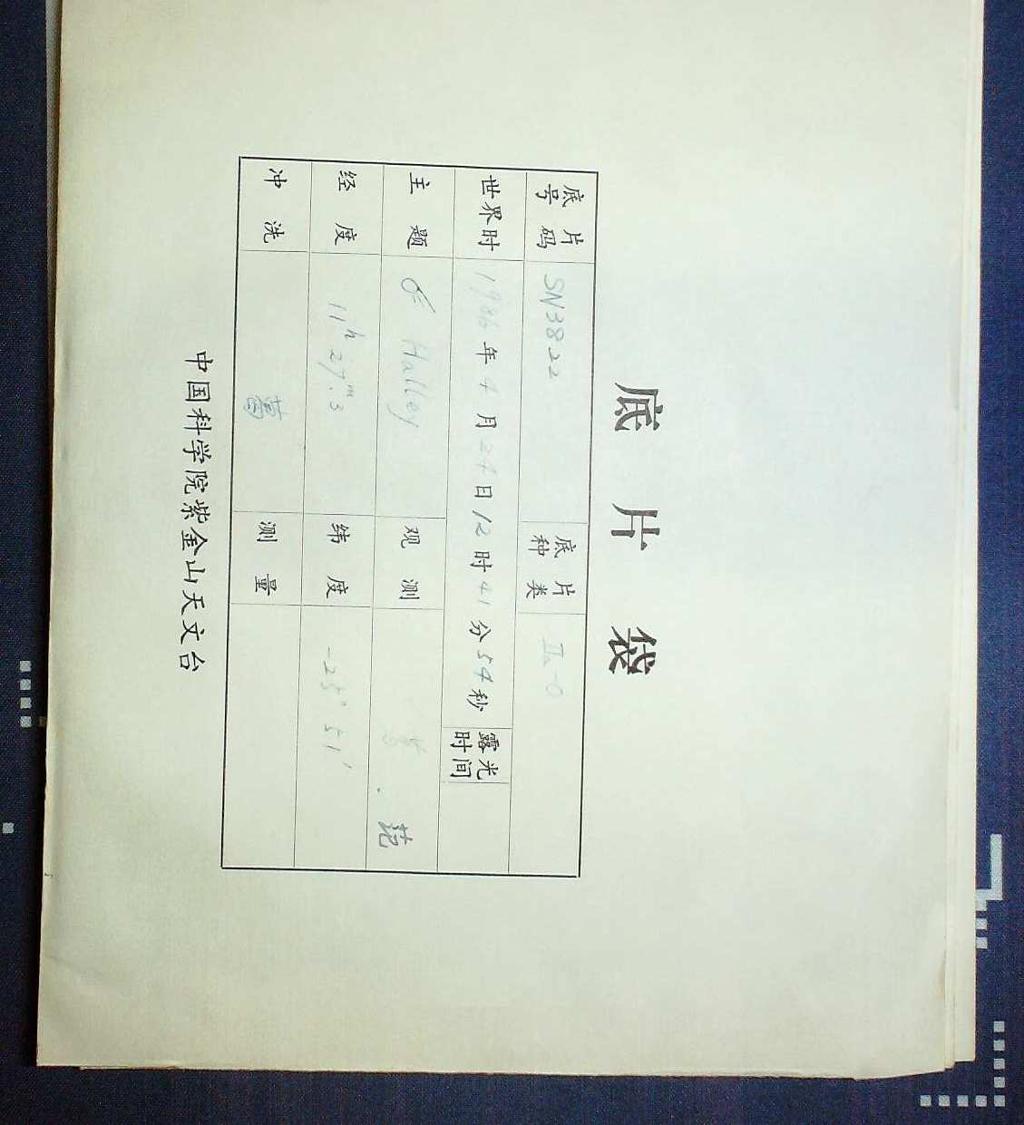 底片袋
底片号码 SN3822 底片种类 IIa-O
世界时 1986年4月24日12时41分54秒 露光时间
主题 ☄ Halley 观测 范
经度 11h 27m.3 纬度 -25° 51′
冲洗 测量
中国科学院紫金山天文台